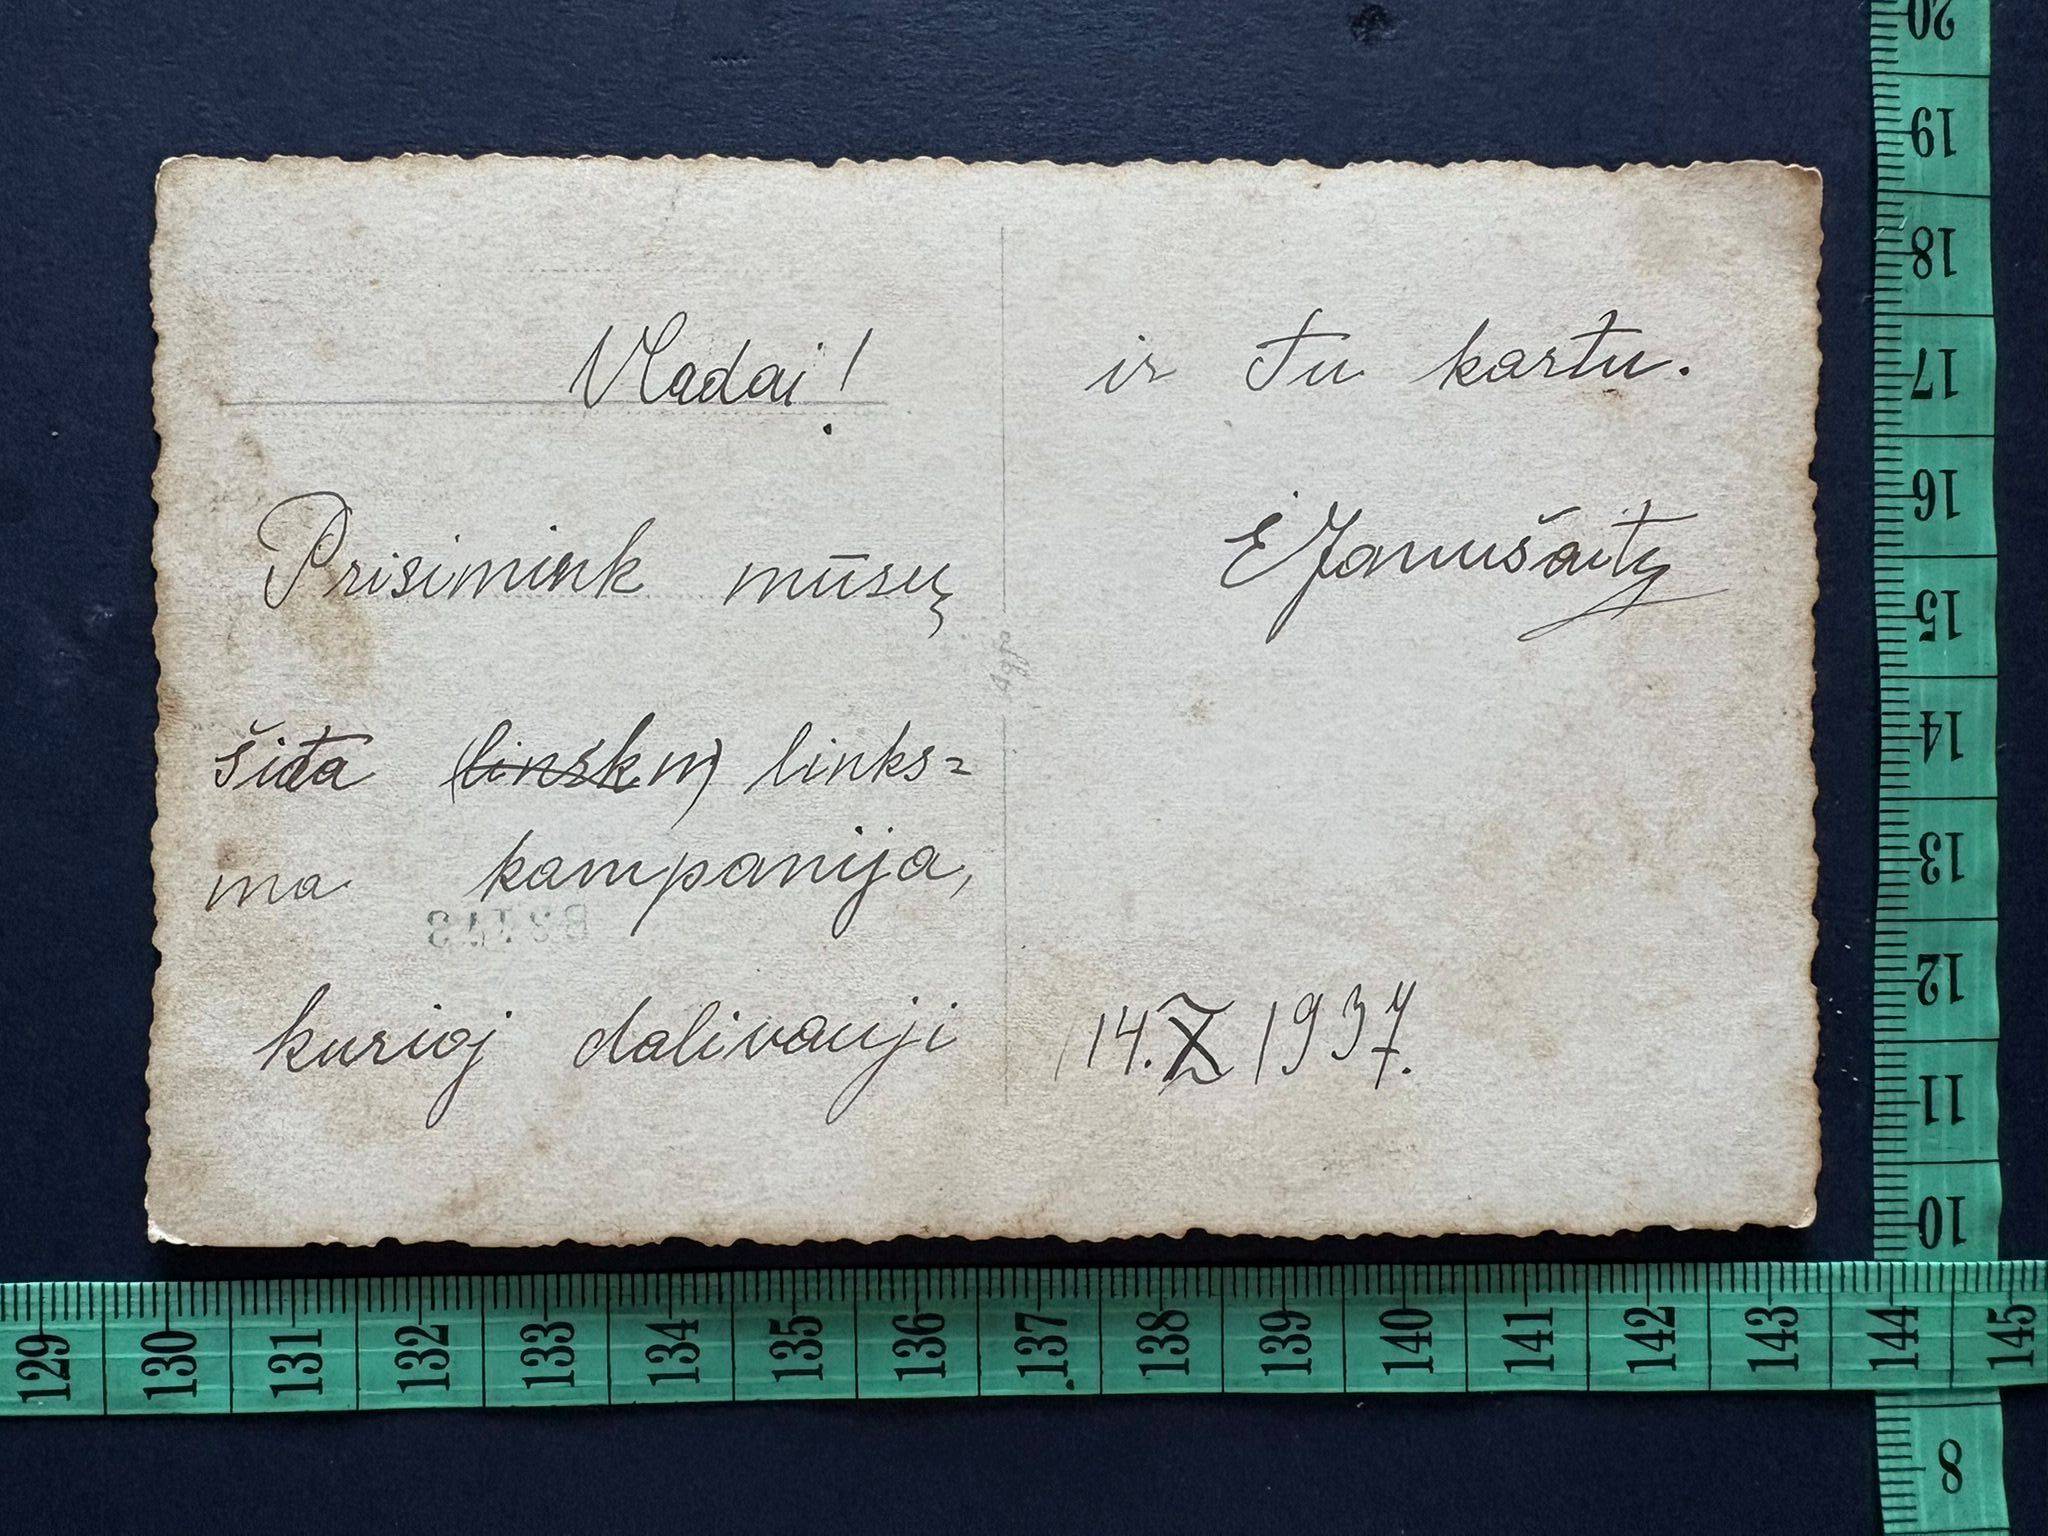 Vladai!
Prisimink mūsų
šiota (linskm) links=
ma kampanija,
kurioj dalivauji
ir Tu kartu.
E Janušaity
14.X 1937.
20
19
18
17
16
15
14
13
12
11
10
8
129 130 131 132 133 134 135 136 137 138 139 140 141 142 143 144 145